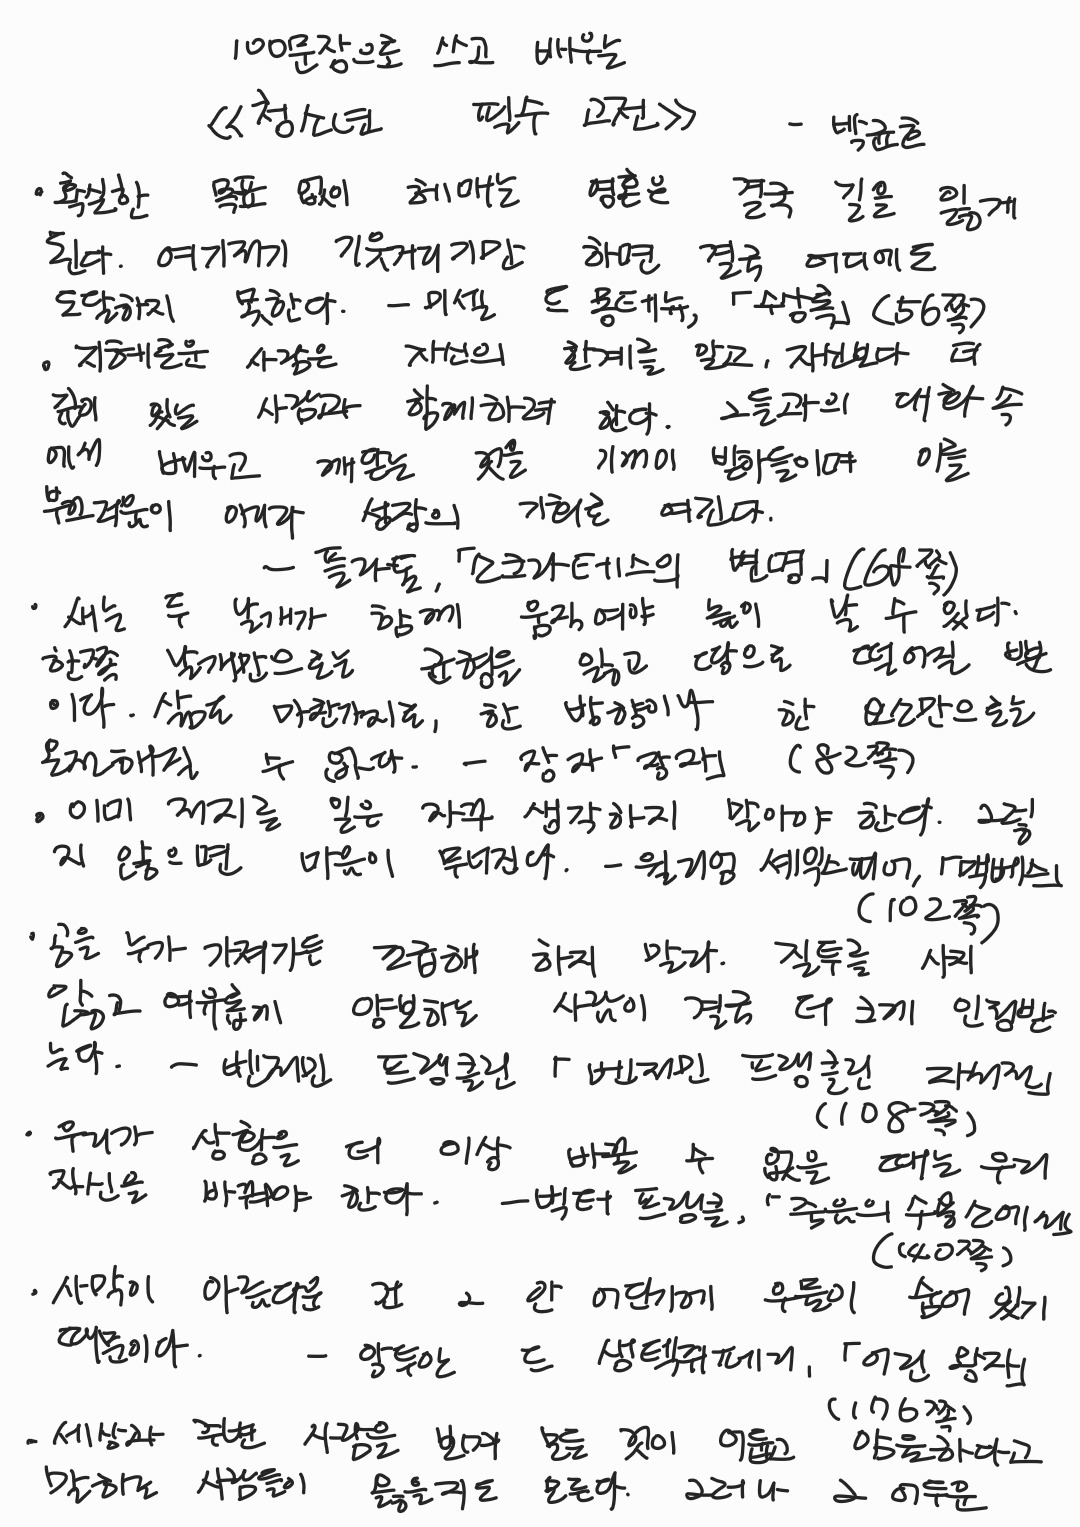 100문장으로 쓰고 배우는
《청소년 필수 고전》 - 박균호
· 확실한 목표 없이 헤매는 영혼은 결국 길을 잃게
된다. 여기저기 기웃거리기만 하면 결국 어디에도
도달하지 못한다. - 미셸 드 몽테뉴, 「수상록」 (56쪽)
· 지혜로운 사람은 자신의 한계를 알고, 자신보다 더
깊이 있는 사람과 함께하려 한다. 그들과의 대화 속
에서 배우고 깨닫는 것을 기꺼이 받아들이며 이를
부끄러움이 아니라 성장의 기회로 여긴다.
- 플라톤, 「소크라테스의 변명」 (68쪽)
· 새는 두 날개가 함께 움직여야 높이 날 수 있다.
한쪽 날개만으로는 균형을 잃고 땅으로 떨어질 뿐
이다. 삶도 마찬가지로, 한 방향이나 한 요소만으로는
온전해질 수 없다. - 장자 「장자」 (82쪽)
· 이미 저지를 일은 자꾸 생각하지 말아야 한다. 그렇
지 않으면 마음이 무너진다. - 윌리엄 셰익스피어, 「맥베스」
(102쪽)
· 공을 누가 가져가든 조급해 하지 말라. 질투를 사지
않고 여유롭게 양보하는 사람이 결국 더 크게 인정받
는다. - 벤저민 프랭클린 「벤저민 프랭클린 자서전」
(108쪽)
· 우리가 상황을 더 이상 바꿀 수 없을 때는 우리
자신을 바꿔야 한다. - 빅터 프랭클, 「죽음의 수용소에서」
(140쪽)
· 사막이 아름다운 건 그 안 어딘가에 우물이 숨어 있기
때문이다. - 앙투안 드 생텍쥐페리, 「어린 왕자」
(176쪽)
- 세상과 주변 사람을 밝게 모든 것이 어둡고 암울하다고
말하는 사람들이 있을지도 모른다. 그러나 그 어두운